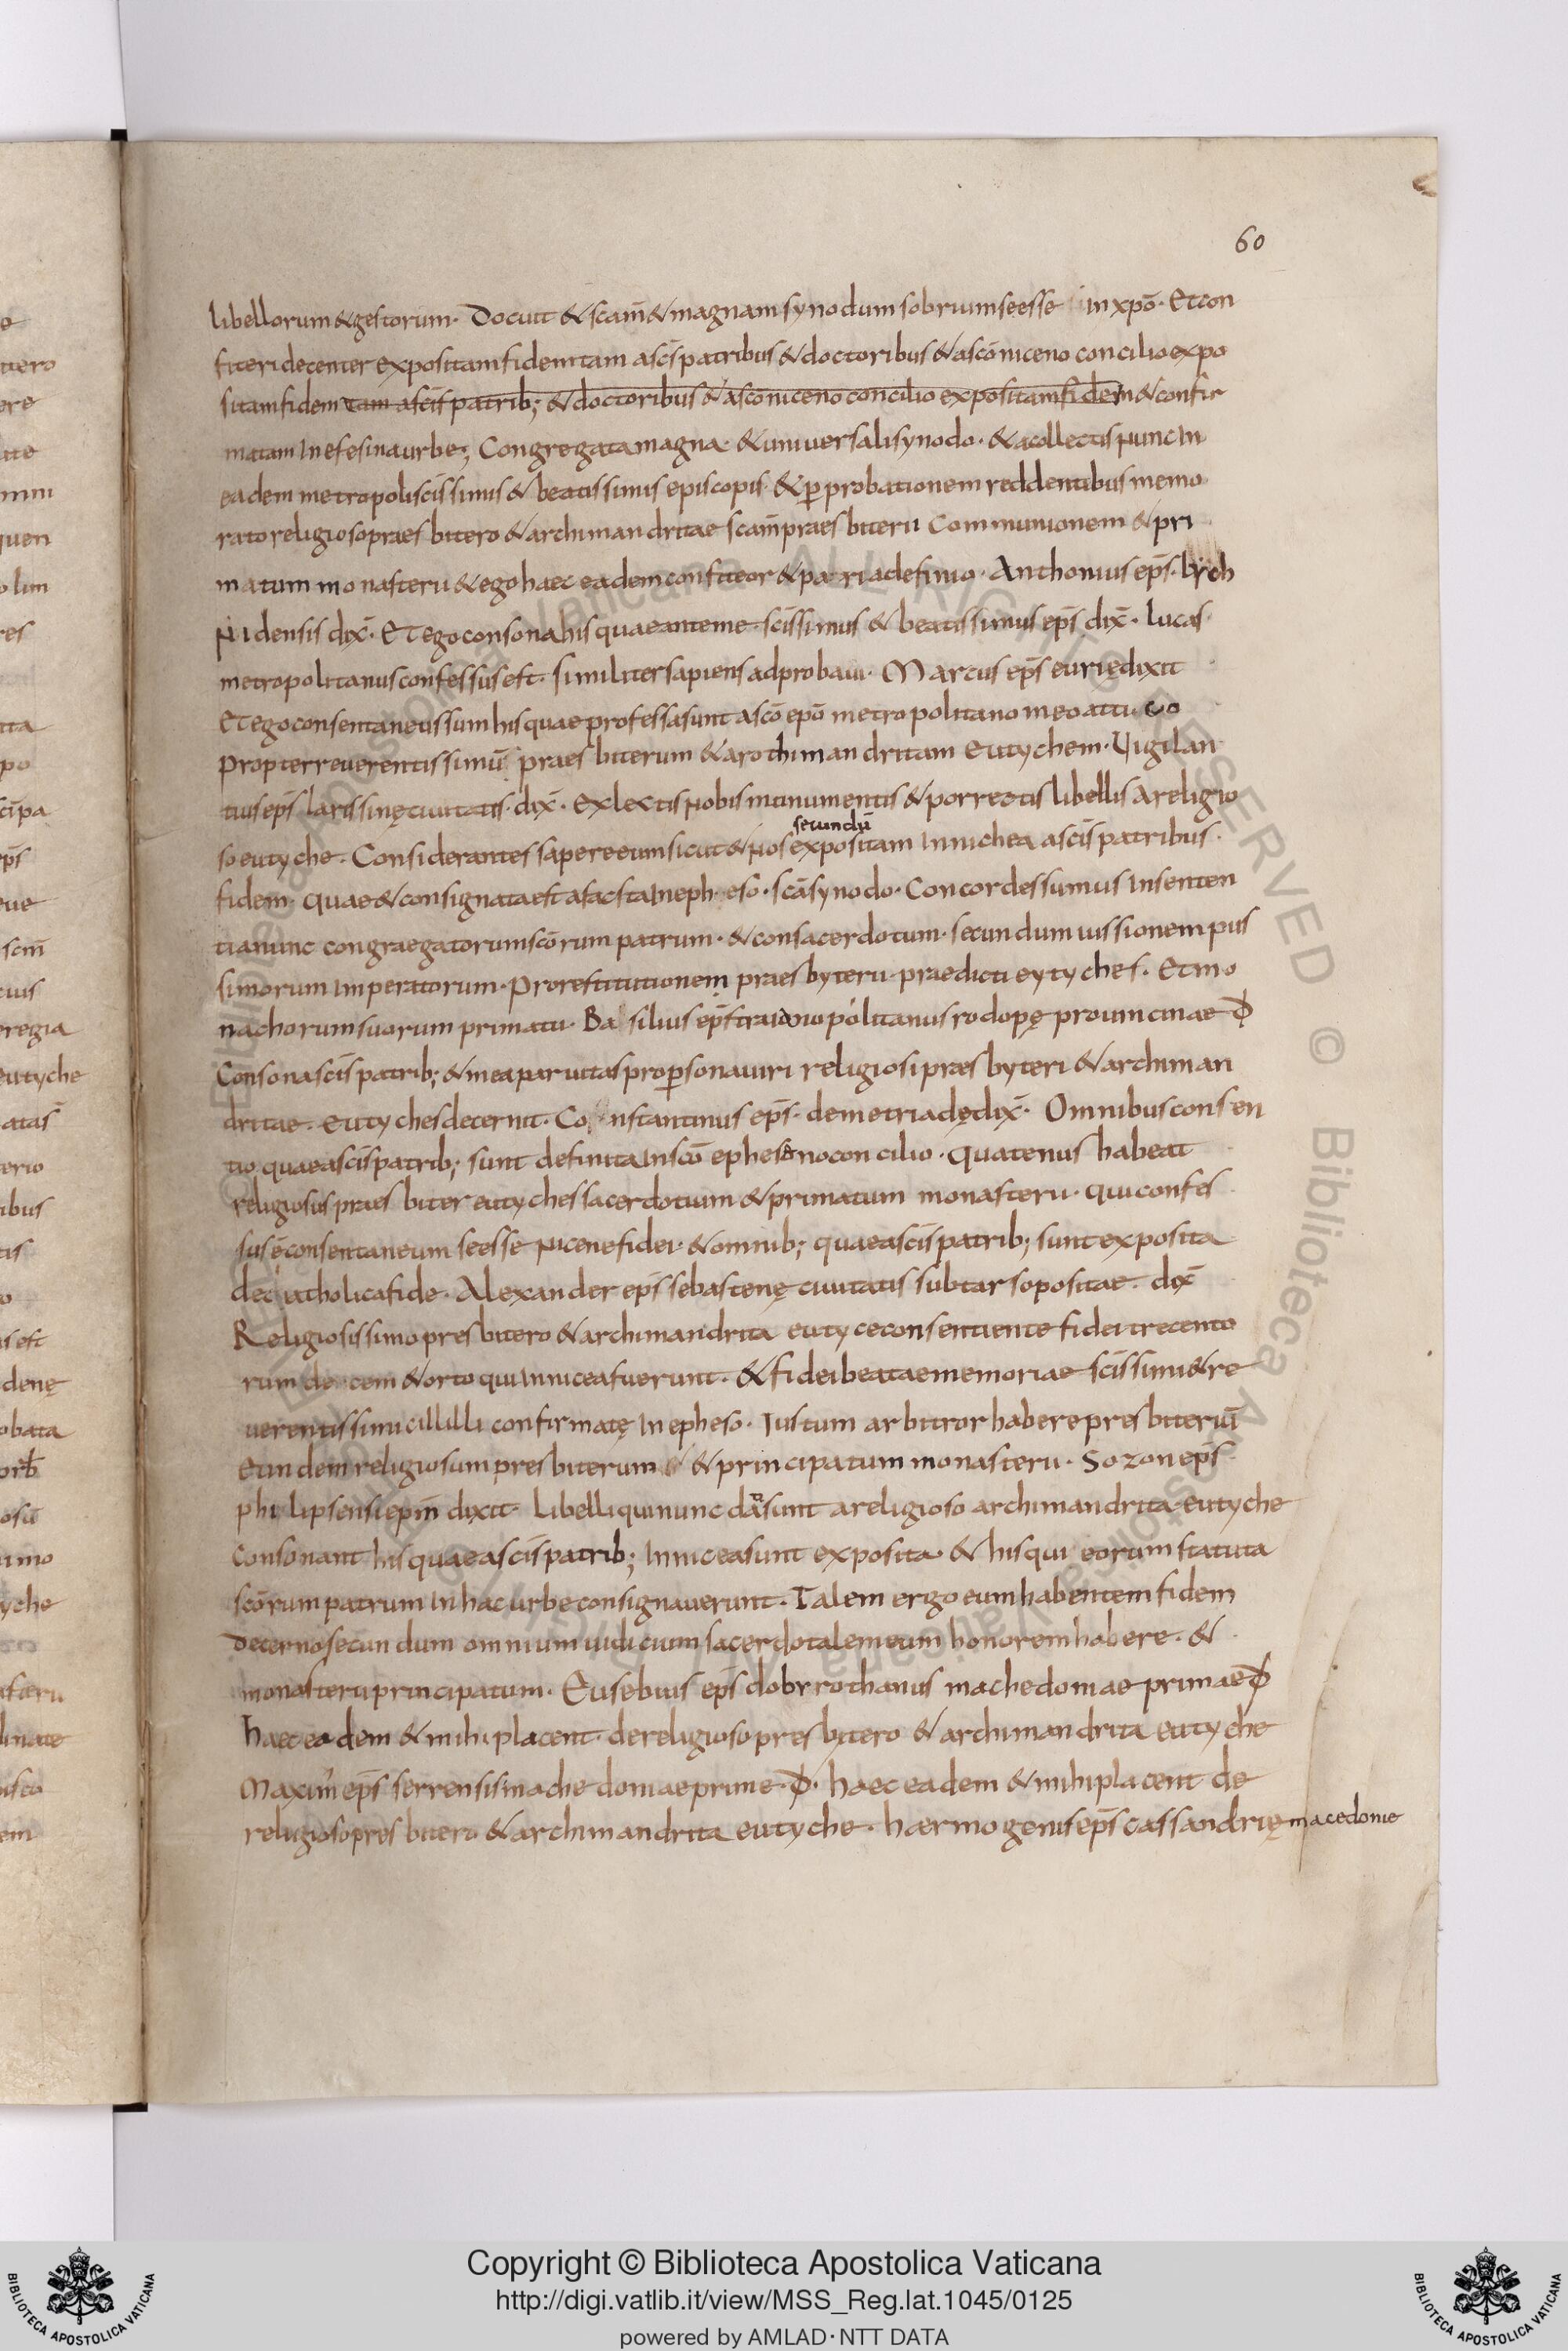 60
libellorum & gestorum· Docuit & scam̄ & magnam synodum sobrium se esse in xp̄o· Et con
fiteri decenter expositam fidem tam a scīs patribus & doctoribus & a scō niceno concilio expo
sitam fidem tam a scīs patrib; & doctoribus & a scō niceno concilio expositam fidem & confir
matam In efesina urbe; Congregata magna· & uniuersali synodo· & a collectis nunc In
eadem metropoli scīssimis & beatissimis episcopis· & ꝑ probationem reddentibus memo
rato religioso praesbitero & archimandritae scam̄ praesbiterii Communionem & pri
matum monasterii & ego haec eadem confiteor & pari a definio· Anthonius ep̄s· lych
nidensis dix̄· Et ego consona his quae ante me scīssimus & beatissimus ep̄s dix̄· lucas
metropolitanus confessus est· similiter sapiens adprobaui· Marcus ep̄s eurię dixit
Et ego consentaneus sum his quae professa sunt a scō ep̄o metropolitano meo attico
propter reuerentissimū praesbiterum & arothimandritam Eutychem· Uigilan
tius ep̄s larissinę ciuitatis· dix̄· Ex lectis nobis munumentis & porrectis libellis a religio
secundū
so eutyche· Considerantes sapere eum sicut & nos expositam In nichea a scīs patribus·
fidem· quae & consignata est a facta In eph eso· scā synodo· Concordes sumus In senten
tia nunc congraegatorum scōrum patrum· & consacerdotum· secundum iussionem piis
simorum Imperatorum· Pro restitutionem praesbyterii praedicti eytyches· Et mo
nachorum suorum primatu· Ba silius ep̄s traianopolitanus rodopę prouincinae đ
Consona scīs patrib; & mea paruitas pro ꝑsona uiri religiosi praesbyteri & archiman
dritae· Eutyches decernit· Co nstantinus ep̄s· demetriadę dix̄· Omnibus consen
tio quae a scīs patrib; sunt definita In scō epheseno concilio· quatenus habeat
religiosus praesbiter eutyches sacerdotium & primatum monasterii· qui confes
sus ē consentaneum se esse nicene fidei· & omnib; quae a scīs patrib; sunt exposita
de catholica fide· Alexander ep̄s sebastenę ciuitatis sub tarso positae· dix̄
Religiosissimo presbitero & archimandrita eutyce consentiente fidei trecento
rum de cem & octo qui In nicea fuerunt· & fidei beatae memoriae scīssimi & re
uerentissimi cillilli confirmatę In epheso· Iustum arbitror habere presbiteriū
Eundem religiosum presbiterum & principatum monasterii· Sozon ep̄s
philipsensi epin̄ dixit· libelli qui nunc dati sunt a religioso archimandrita eutyche
Consonant his quae a scīs patrib; In nicea sunt exposita & his qui eorum statuta
scōrum patrum In hac urbe consignauerunt· Talem ergo eum habentem fidem
Decerno secundum omnium iudicium sacerdotalem eum honorem habere· &
monasterii principatum· Eusebius ep̄s dobrrothanus machedoniae primae đ
haec eadem & mihi placent· de religioso presbytero & archimandrita eutyche
Maxim̄ ep̄s serrensis machedoniae prime· đ· haec eadem & mihi placent de
religioso presbitero & archimandrita eutyche· hærmogenis ep̄s cassandrię macedonie
Copyright © Biblioteca Apostolica Vaticana
http://digi.vatlib.it/view/MSS_Reg.lat.1045/0125
powered by AMLAD·NTT DATA
BIBLIOTECA APOSTOLICA VATICANA
BIBLIOTECA APOSTOLICA VATICANA